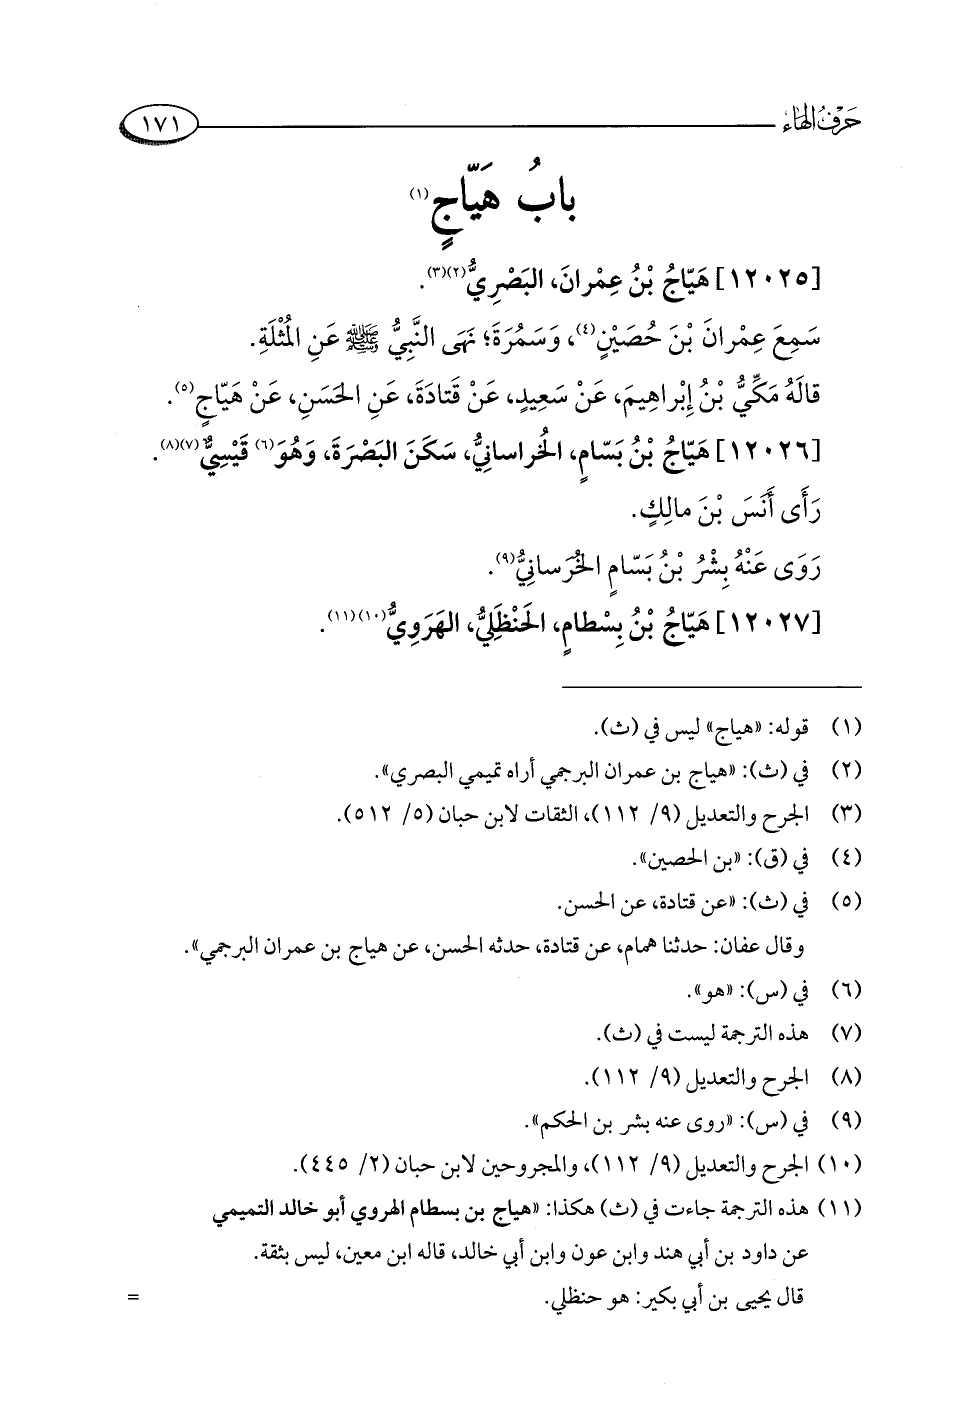 حَرْفُ الهَاء
١٧١
بابُ هَيّاجٍ(١)
[١٢٠٢٥] هَيّاجُ بْنُ عِمْرانَ، البَصْرِيُّ(٢)(٣).
سَمِعَ عِمْرانَ بْنَ حُصَيْنٍ(٤)، وَسَمُرَةَ؛ نَهَى النَّبِيُّ ﷺ عَنِ المُثْلَةِ.
قالَهُ مَكِّيُّ بْنُ إِبْراهِيمَ، عَنْ سَعِيدٍ، عَنْ قَتادَةَ، عَنِ الحَسَنِ، عَنْ هَيّاجٍ(٥).
[١٢٠٢٦] هَيّاجُ بْنُ بَسّامٍ، الخُراسانِيُّ، سَكَنَ البَصْرَةَ، وَهُوَ(٦) قَيْسِيٌّ(٧)(٨).
رَأَى أَنَسَ بْنَ مالِكٍ.
رَوَى عَنْهُ بِشْرُ بْنُ بَسّامٍ الخُرَسانِيُّ(٩).
[١٢٠٢٧] هَيّاجُ بْنُ بِسْطامٍ، الحَنْظَلِيُّ، الهَرَوِيُّ(١٠)(١١).
(١) قوله: «هياج» ليس في (ث).
(٢) في (ث): «هياج بن عمران البرجمي أراه تميمي البصري».
(٣) الجرح والتعديل (٩/ ١١٢)، الثقات لابن حبان (٥/ ٥١٢).
(٤) في (ق): «بن الحصين».
(٥) في (ث): «عن قتادة، عن الحسن.
وقال عفان: حدثنا همام، عن قتادة، حدثه الحسن، عن هياج بن عمران البرجمي».
(٦) في (س): «هو».
(٧) هذه الترجمة ليست في (ث).
(٨) الجرح والتعديل (٩/ ١١٢).
(٩) في (س): «روى عنه بشر بن الحكم».
(١٠) الجرح والتعديل (٩/ ١١٢)، والمجروحين لابن حبان (٢/ ٤٤٥).
(١١) هذه الترجمة جاءت في (ث) هكذا: «هياج بن بسطام الهروي أبو خالد التميمي
عن داود بن أبي هند وابن عون وابن أبي خالد، قاله ابن معين، ليس بثقة.
قال يحيى بن أبي بكير: هو حنظلي. =